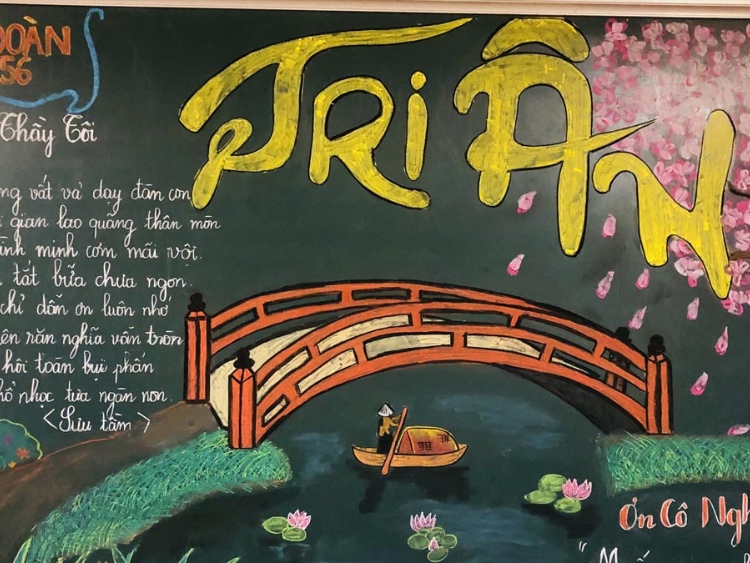 ĐOÀN
56
TRI ÂN
Thầy Tôi
vất vả dạy dàn con
gian lao quãng thân mòn
minh cơm mãi vội.
tắt bữa chưa ngon.
chỉ dẫn ơn luôn nhớ
răn nghĩa vẫn tròn
hôi toàn bụi phấn
nhọc tựa ngàn non.
<Sưu tầm>
Ơn Cô